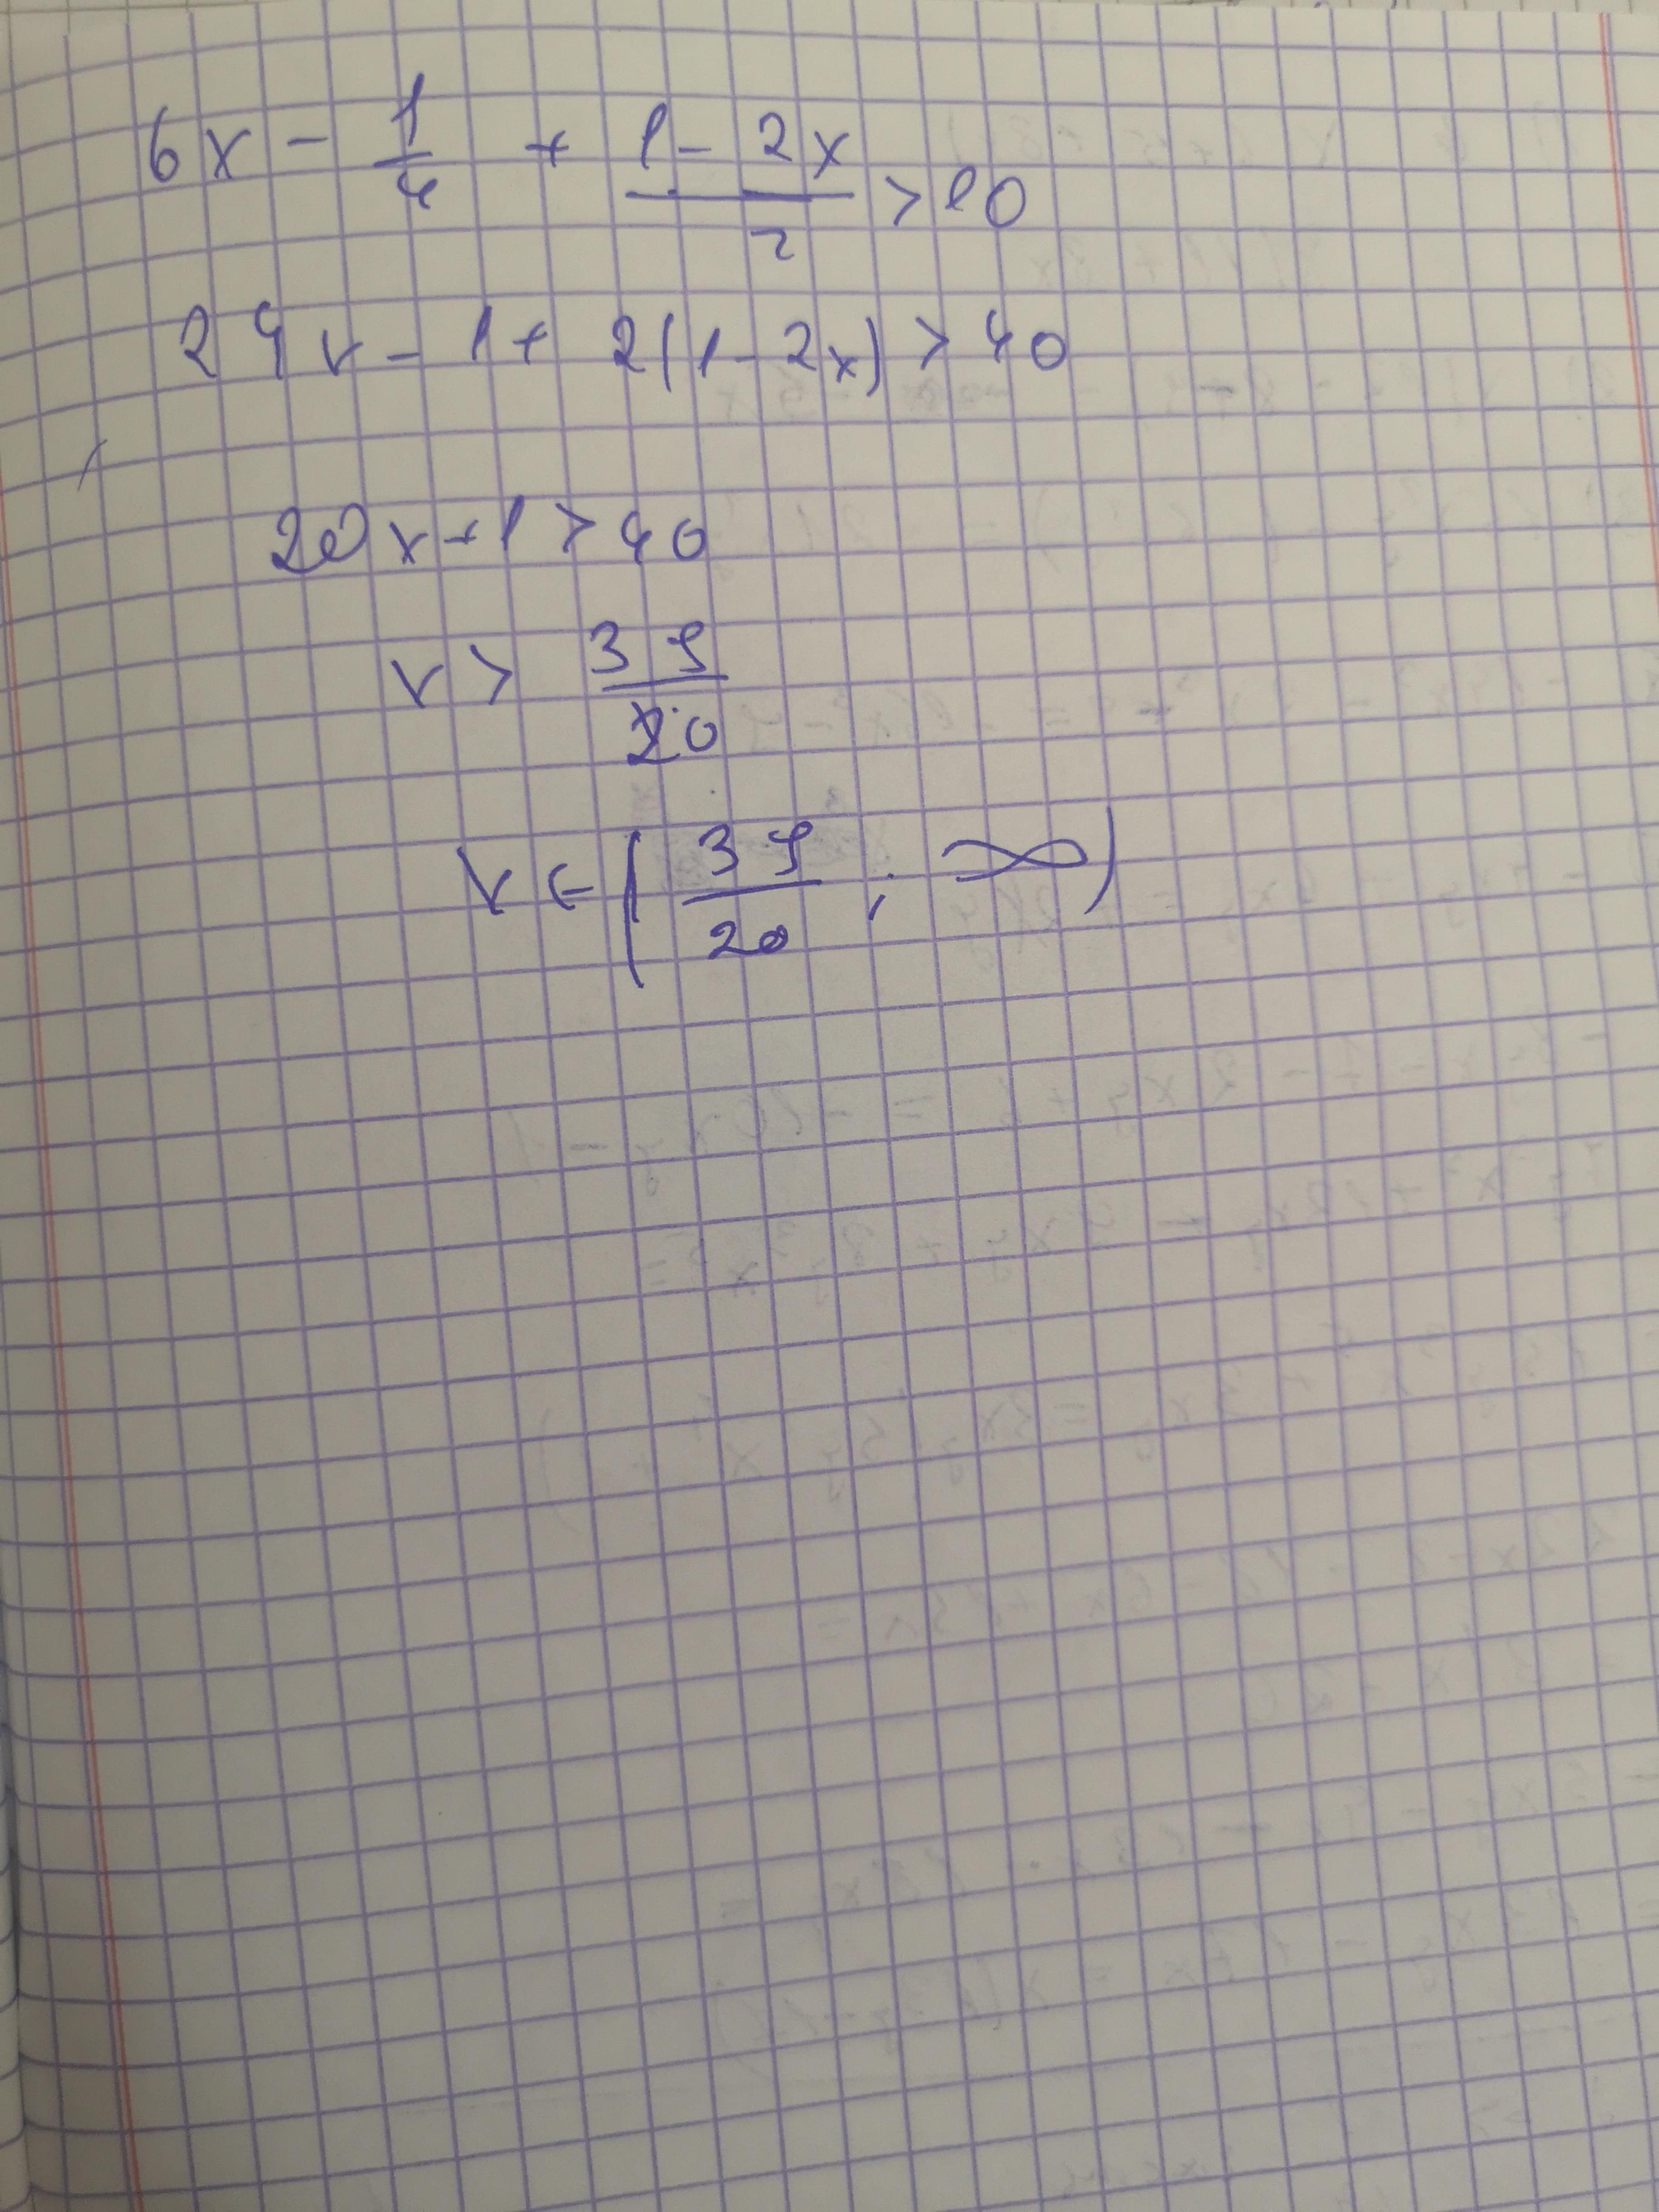 6x - 1/4 + (1 - 2x)/2 > 10
24x - 1 + 2(1 - 2x) > 40
20x + 1 > 40
x > 39/20
x ∈ (39/20 ; ∞)